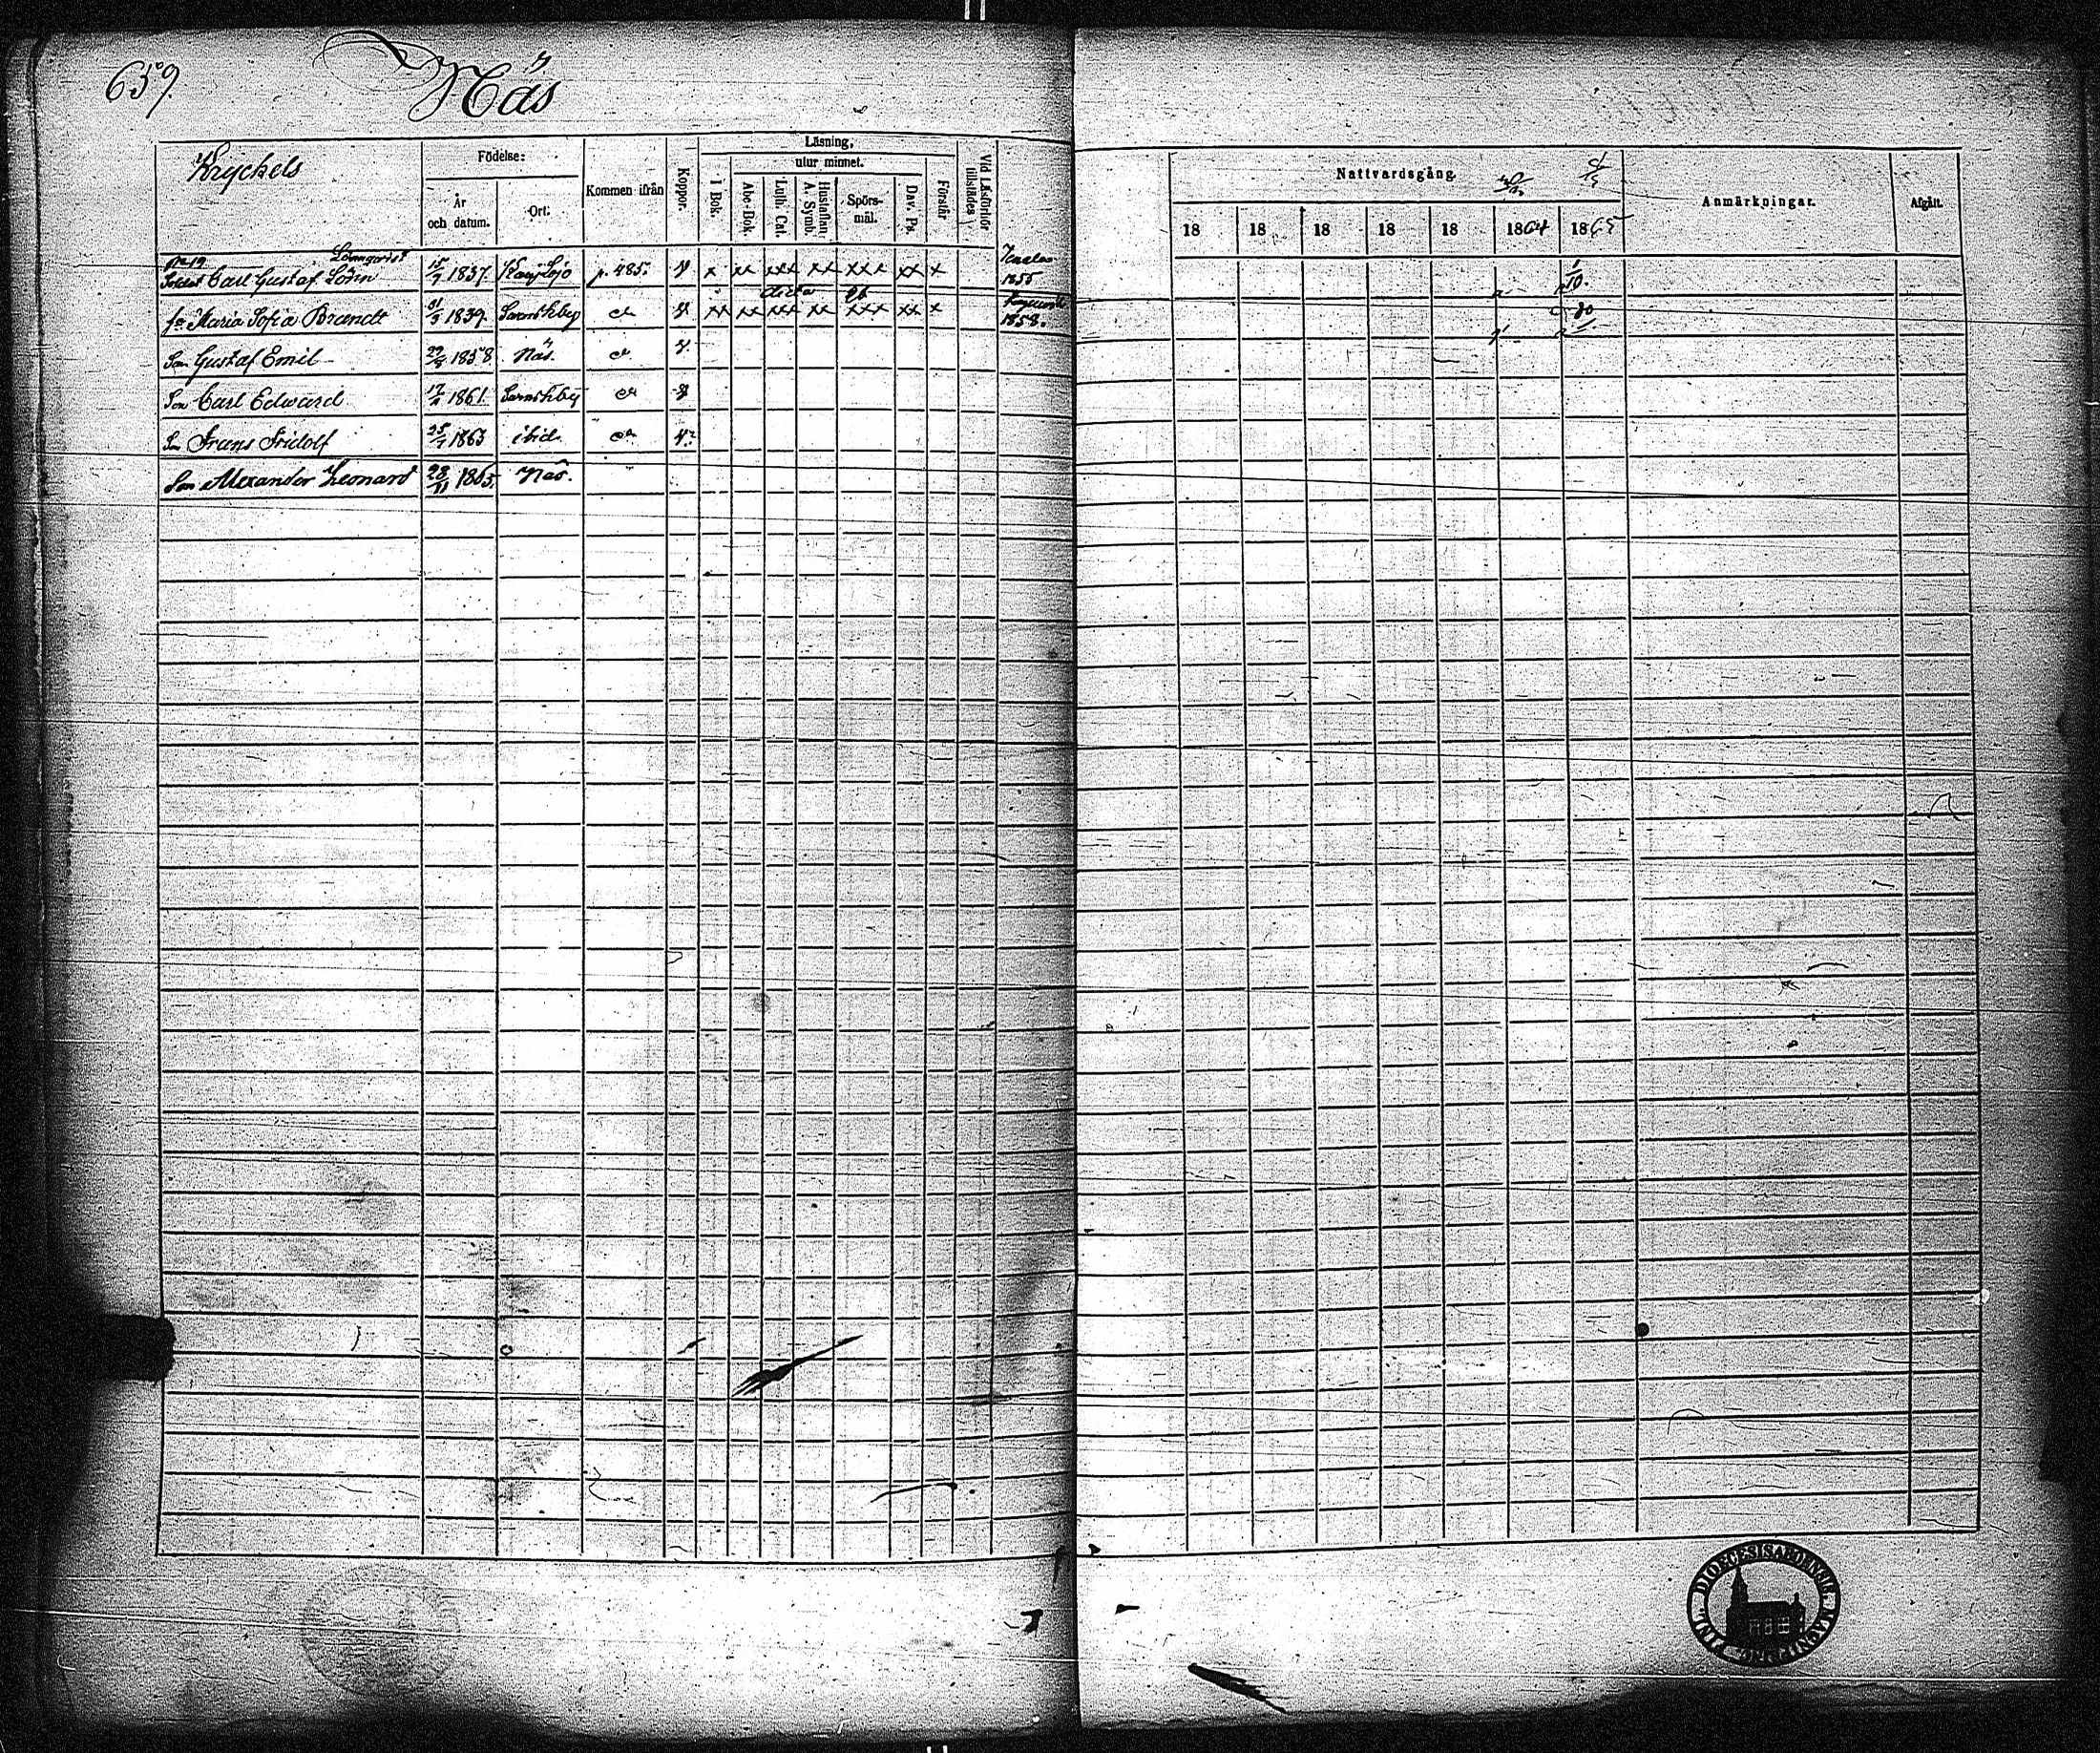 659.
Näs
Kryckels
Födelse:
År och datum.
Ort.
Kommen ifrån
Koppor.
Läsning,
utur minnet.
I Bok.
Abc-Bok.
Luth. Cat.
Hustaflan, A. Symb.
Spörs-mål.
Dav. Ps.
Förstår
Vid Läsförhör tillstädes
Nattvardsgång.
18 18 18 18 18 1864 1865
Anmärkningar.
Afgått.
No 19
Soldat Carl Gustaf Lodin 15/7 1837. Karis Lojo p. 485. v x xx xxx xx xxx xx x 1855
Hu Maria Sofia Brandt 31/3 1839. v xx xx xxx xx xxx xx x 1858.
Son Gustaf Emil 1858 Näs. v.
Son Carl Edward 1861 v
Son Frans Fridolf 1863 ibid.
Son Alexander Leonard 28/11 1865. Näs.
DIOECESIS ABOENSIS MAGNI PRINC. FINL.